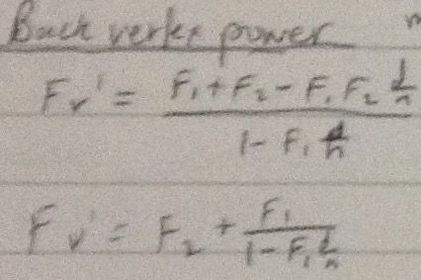 Back vertex power
Fv' = (F₁ + F₂ - F₁ F₂ d/n) / (1 - F₁ d/n)
Fv' = F₂ + F₁ / (1 - F₁ d/n)